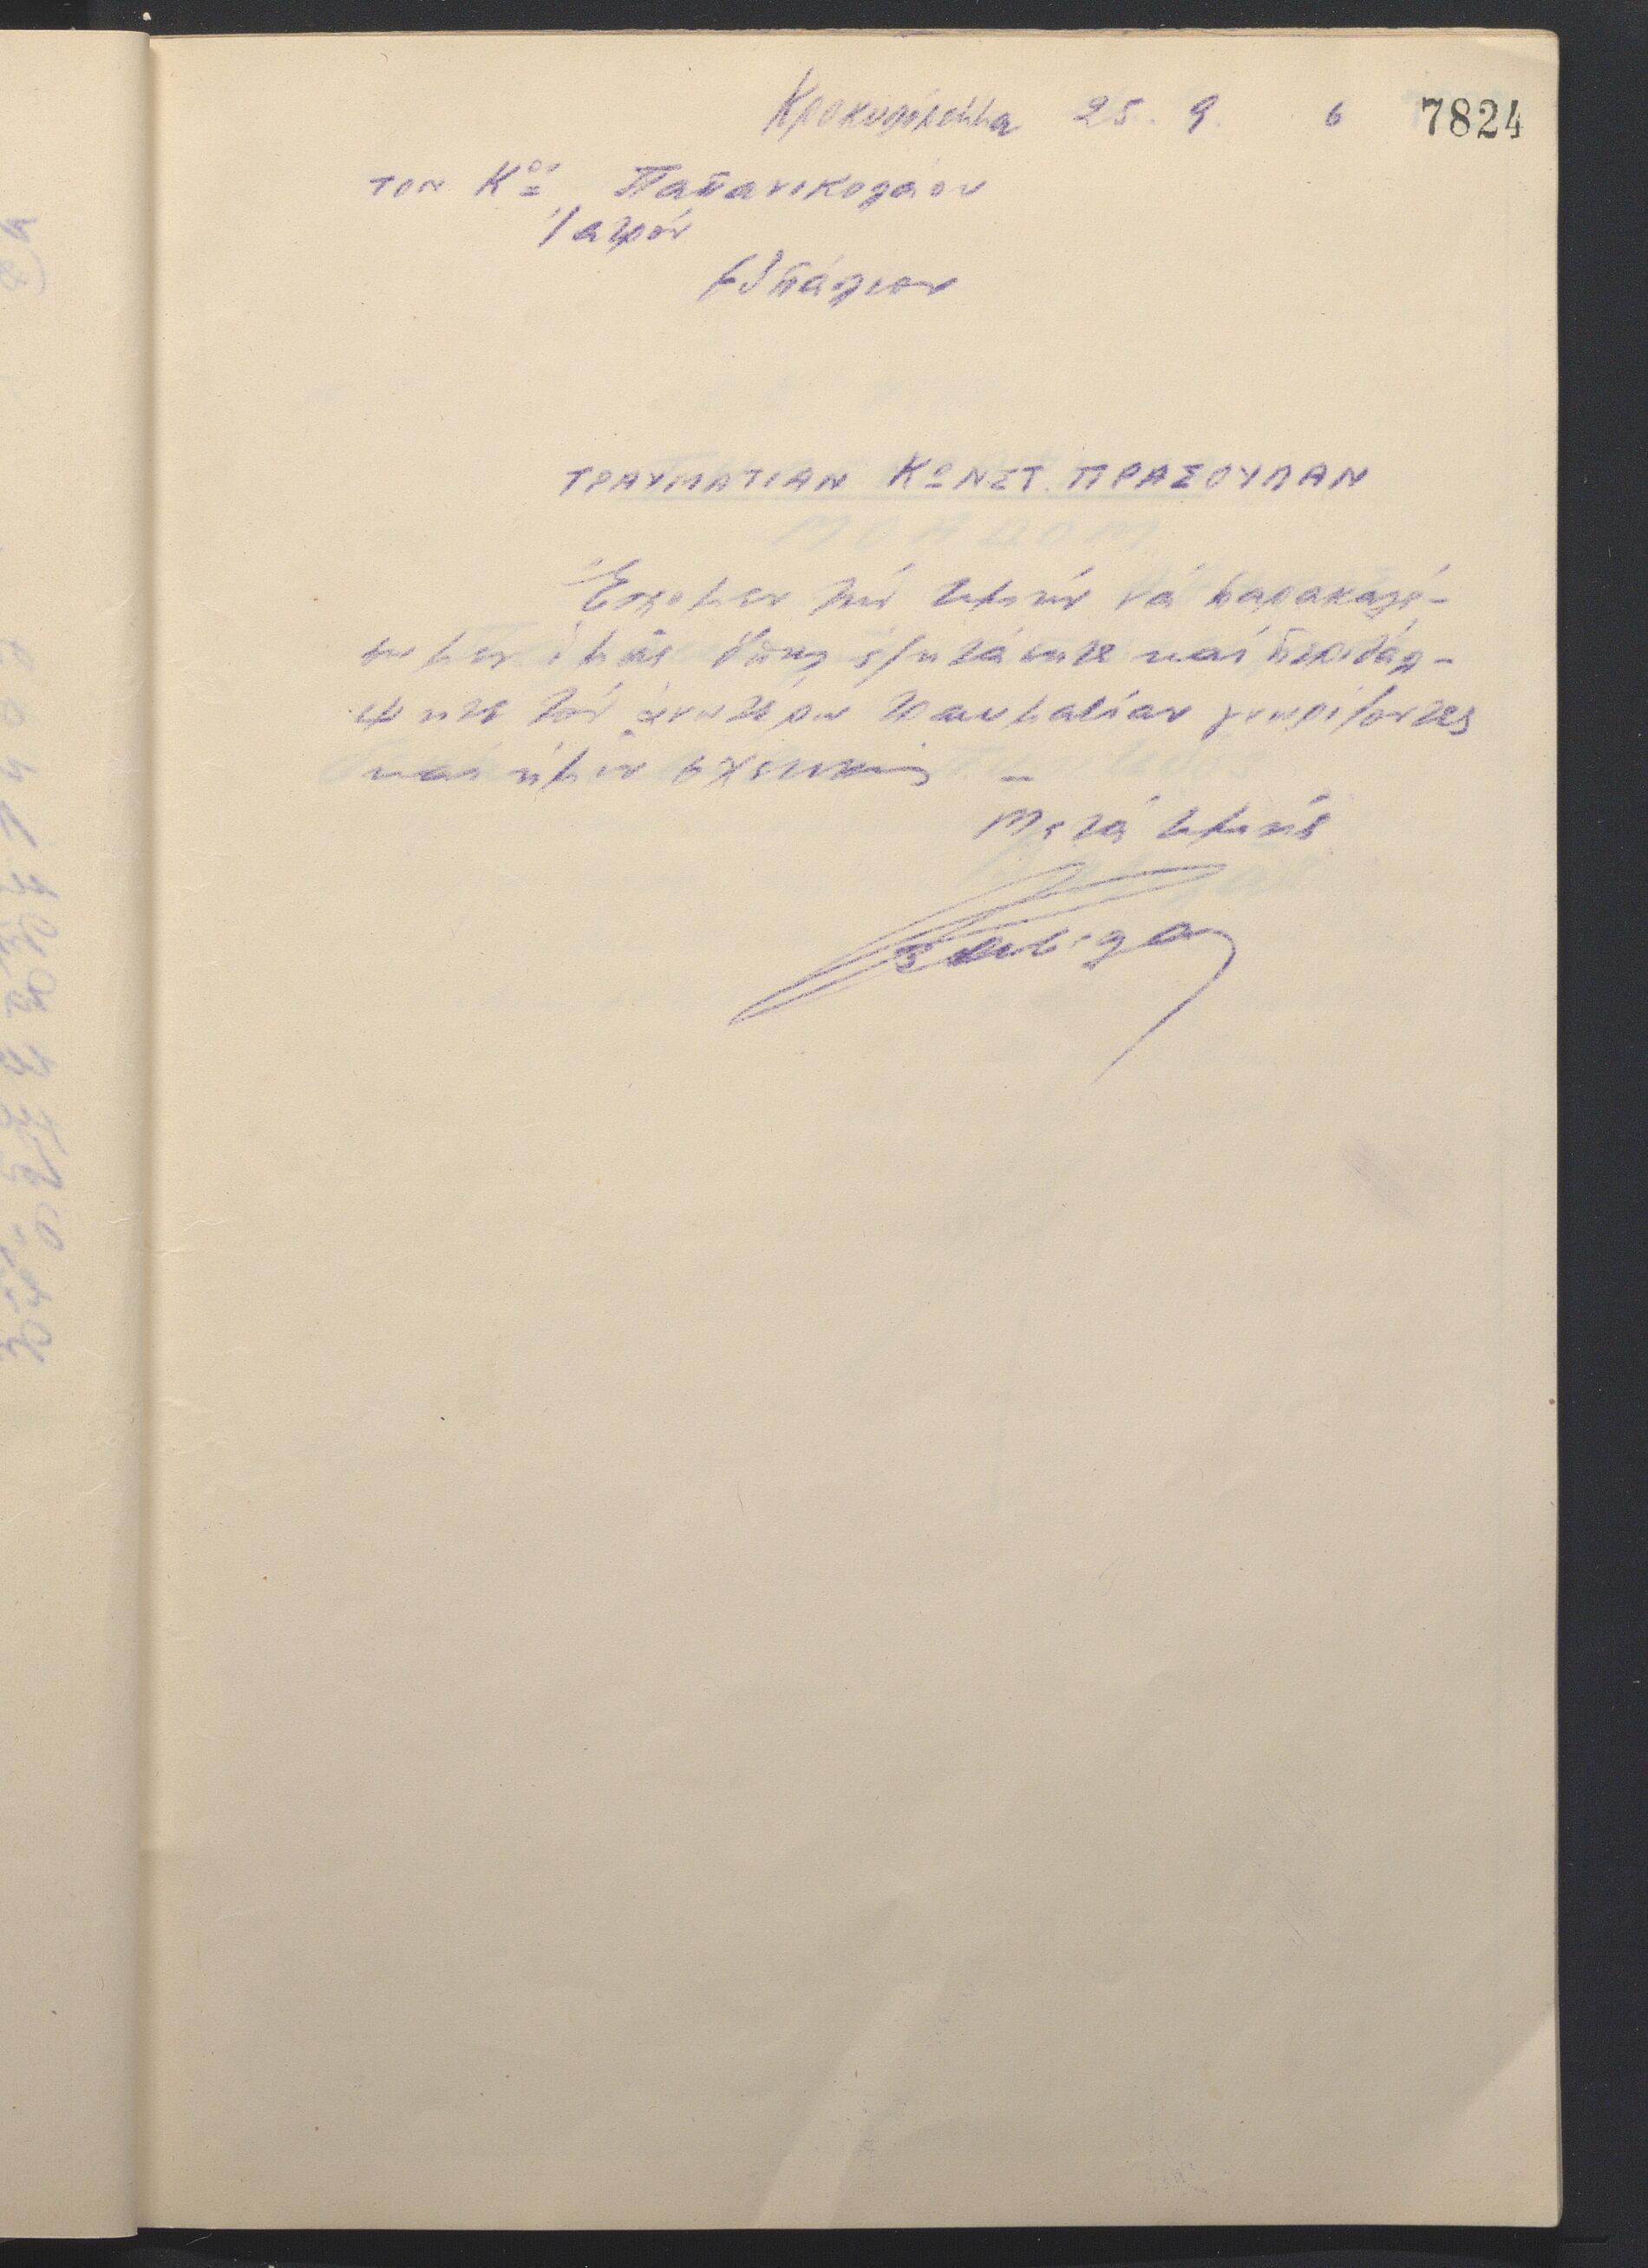 Κροκυλόρεμμα 25. 9. 6 7824
ΤΟΝ Κον Παπανικολάου
Ἰατρόν
Εὐπάλιον
ΤΡΑΥΜΑΤΙΑΝ ΚΩΝΣΤ. ΠΡΑΣΟΥΛΑΝ
Ἔχομεν τήν τιμήν νά παρακαλέ-
σωμεν ὑμᾶς ὅπως ἐξετάσητε καί περιθάλ-
ψητε τόν ἀνωτέρω τραυματίαν γνωρίζοντες
καί ἡμῖν σχετικῶς –
Μετά τιμῆς